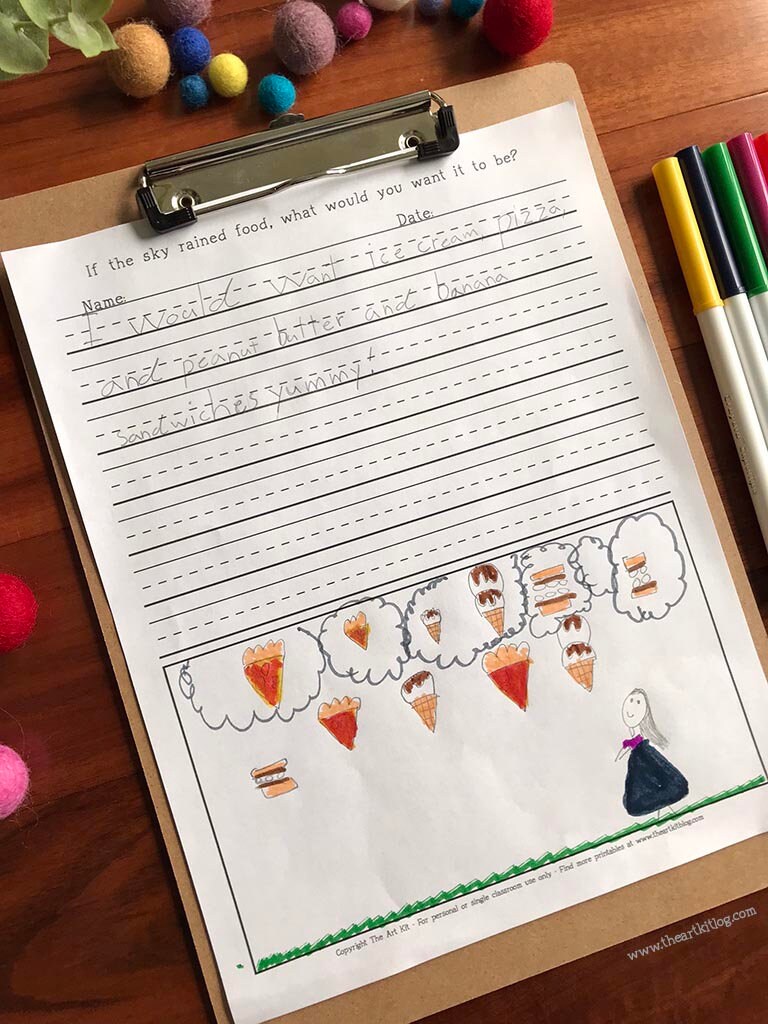 If the sky rained food, what would you want it to be?
Date:
Name:
I would want ice cream, pizza,
and peanut butter and banana
sandwiches yummy!
Copyright The Art Kit - For personal or single classroom use only - Find more printables at www.theartkitblog.com
www.theartkitblog.com